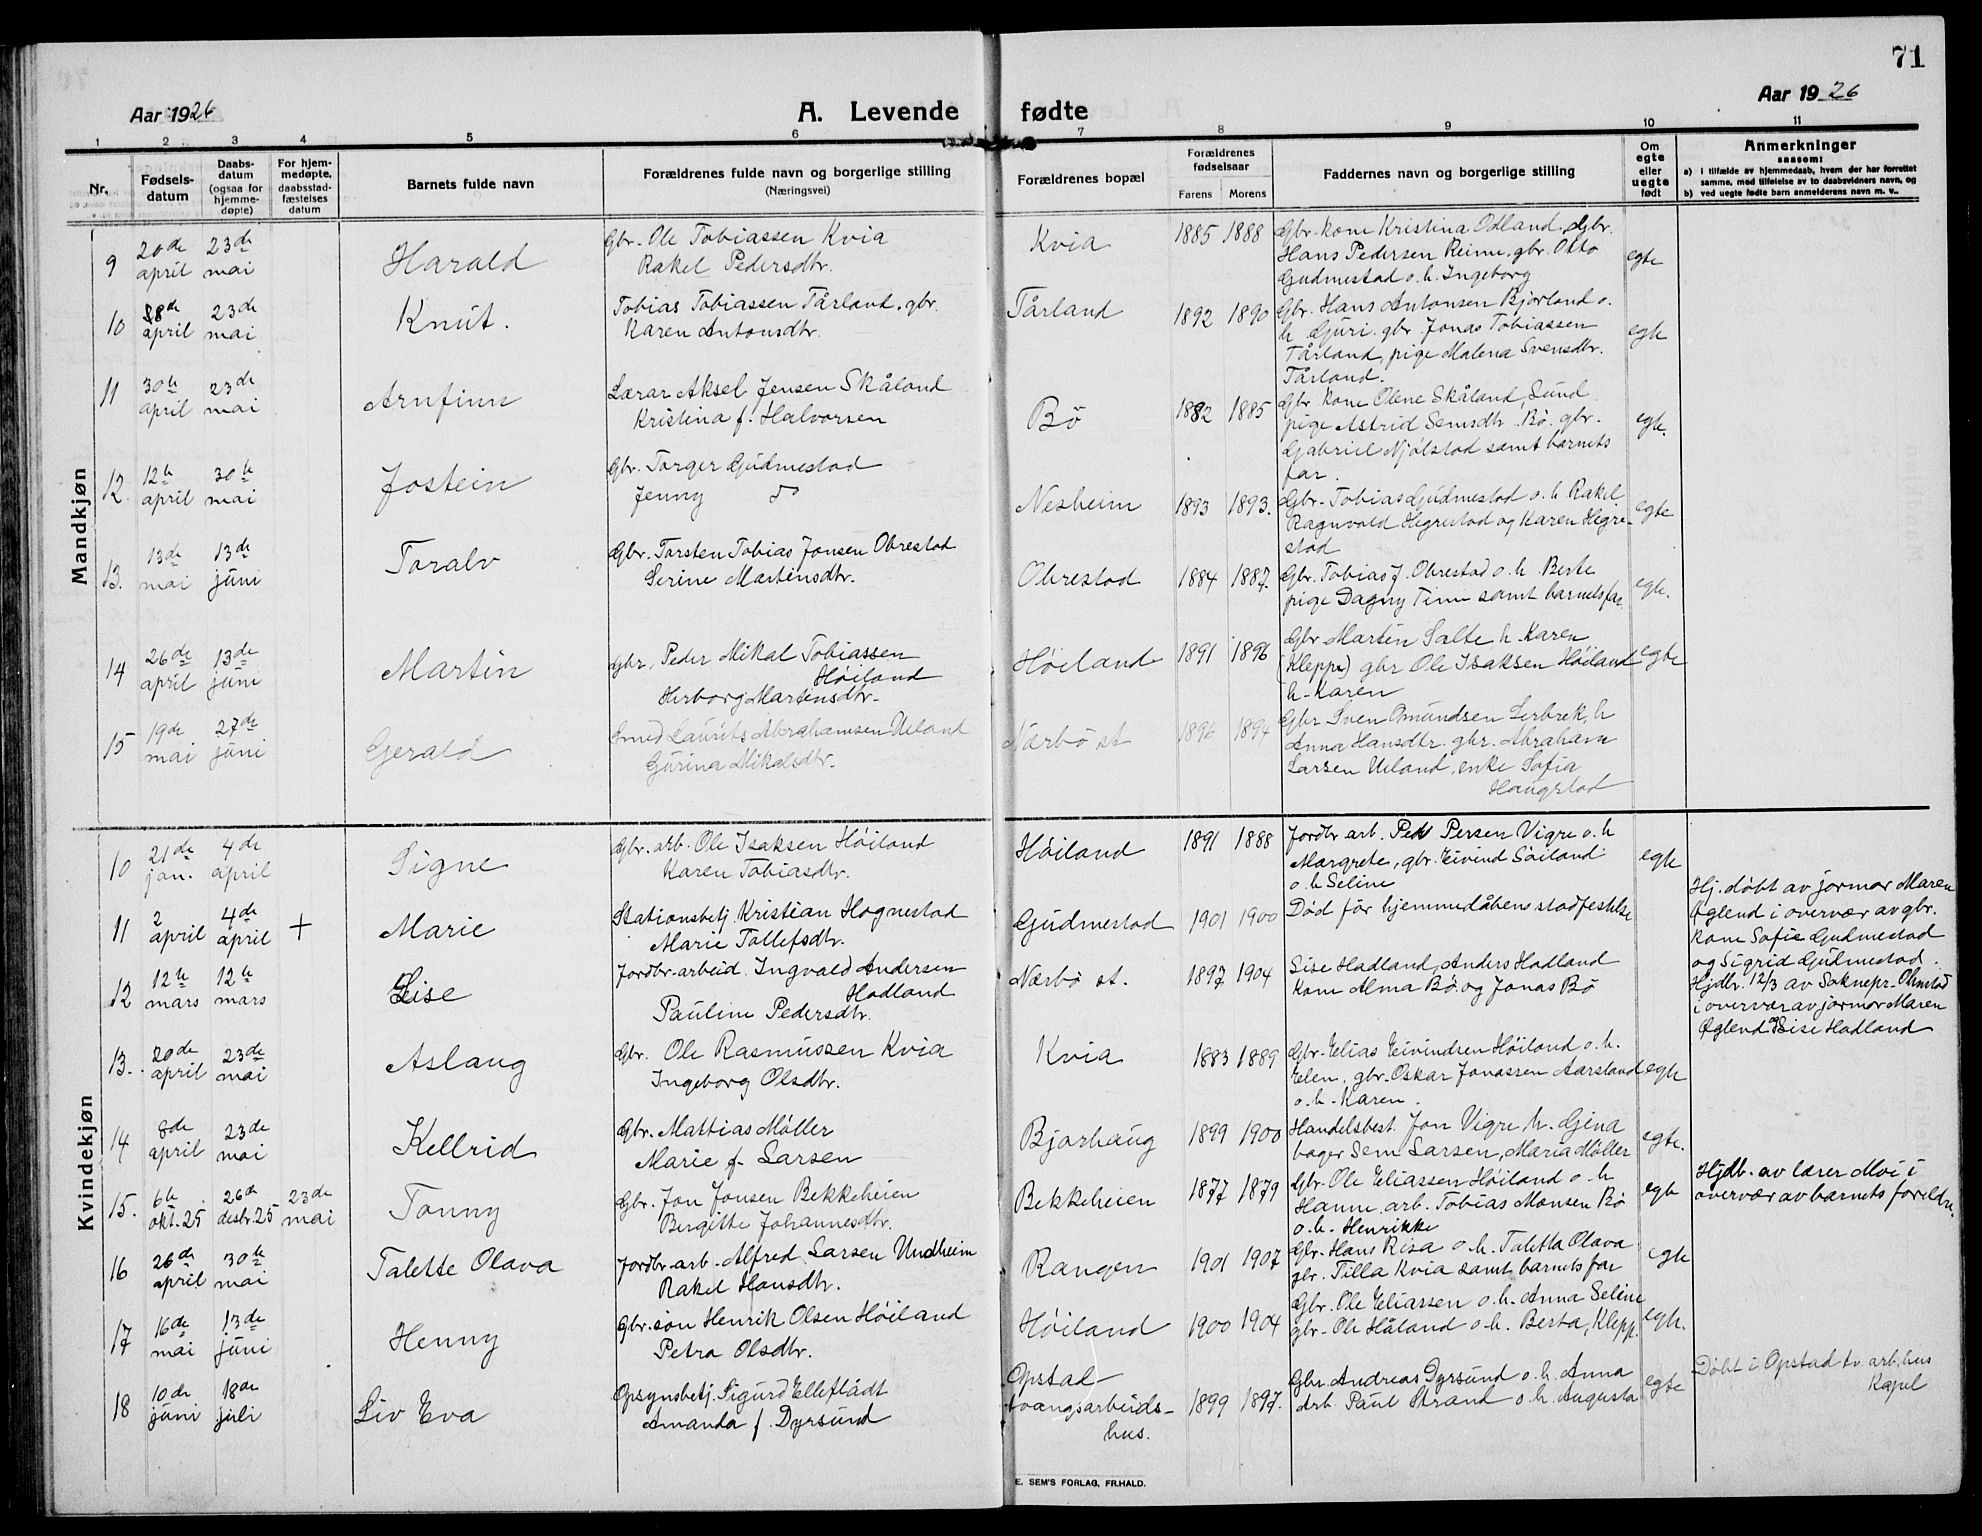 71
Aar 1926
A. Levende fødte
Aar 1926
1 2 3 4 5 6 7 8 9 10 11
Nr. Fødsels-datum Daabs-datum (ogsaa for hjemme-døpte) For hjem-medøpte, daabsstad-fæstelses datum Barnets fulde navn Forældrenes fulde navn og borgerlige stilling (Næringsvei) Forældrenes bopæl Forældrenes fødselsaar Farens Morens Faddernes navn og borgerlige stilling Om egte eller uegte født Anmerkninger saasom:
a) i tilfælde av hjemmedaab, hvem der har forrettet samme, med tilføielse av to daabsvidners navn, og
b) ved uegte fødte barn anmelderens navn m. v..
Mandkjøn
9 20de april 23de mai Harald Gbr. Ole Tobiassen Kvia
Rakel Pedersdtr. Kvia 1885 1888 Gbr. kone Kristina Odland, gbr.
Hans Pedersen Reime, gbr. Otto
Gudmestad o. h. Ingeborg egte
10 april 23de mai Knut. Tobias Tobiassen Tårland, gbr.
Karen Antonsdtr. Tårland 1892 1890 Gbr. Hans Antonsen Bjorland o.
h. Guri. gbr. Jonas Tobiassen
Tårland, pige Malena Svensdtr.
Tårland. egte
11 30te april 23de mai Arnfinn Lærar Aksel Jensen Skåland
Kristina f. Halvorsen Bø 1882 1885 Gbr kone Olene Skåland, Sund
pige Astrid Semsdtr. Bø. gbr.
Gabriel Njølstad samt barnets
far. egte.
12. 12te april 30te mai Jostein Gbr. Torger Gudmestad
Jenny do Nesheim 1893 1893. Gbr. Tobias Gudmestad o. h Rakel
Ragnvald Hegrestad og Karen Hegre-
stad egte
13. 13de mai 13de juni Toralv Gbr. Torsten Tobias Jonsen Obrestad
Serine Martinsdtr. Obrestad 1884 1887. Gbr. Tobias J. Obrestad o. h. Berte
pige Dagny Time samt barnets far egte.
14 26de april 13de juni Martin Gbr. Peder Mikal Tobiassen
Høiland
Herborg Martinsdtr. Høiland 1891 1896 Gbr Martin Salte h. Karen
(Kleppe) gbr Ole Isaksen Høiland
h. Karen egte
15 19de mai 27de juni Gerald Smed Laurits Abrahamsen Ueland
Gurina Mikalsdtr. Nærbø st 1896 1894 Gbr Sven Omundsen Serbrek, h
Anna Hansdtr. gbr. Abraham
Larsen Ueland, enke Sofia
Haugstad
Kvindekjøn
10 21de jan. 4de april Signe Gbr. arb. Ole Isaksen Høiland
Karen Tobiasdtr. Høiland 1891 1888 Jordbr. arb. Peder Persen Vigre o. h
Margrete, gbr. Eivind Søiland
o. h Seline egte
11 2 april 4de april + Marie Stationsbetj Kristian Hognestad
Marie Tollefsdtr. Gudmestad 1901 1900 Død før hjemmedåbens stadfestelse Hj. døbt av jormor Maren
Øglend i overvær av gbr.
kone Sofie Gudmestad
og Sigrid Gudmestad.
12 12te mars 12te mars Lise Jordbr. arbeid. Ingvald Andersen
Hadland
Pauline Pedersdtr. Nærbø st. 1897 1904 Lise Hadland, Anders Hadland
kone Alma Bø og Jonas Bø Hjdbr. 12/3 av Soknepr. Ohnstad
i overvær av jormor Maren
Øglend og Lise Hadland
13. 20de april 23de mai Aslaug Gbr. Ole Rasmussen Kvia
Ingeborg Olsdtr. Kvia 1883 1889 Gbr. Elias Eivindsen Høiland o. h.
Elen, gbr. Oskar Jonassen Aarsland
o. h. Karen. egte
14 8de april 23de mai Kellrid Gbr. Mattias Møller
Marie f. Larsen Bjorhaug 1899 1900 Handelsbest. Jon Vigre h. Gjena
bager Sem Larsen, Maria Møller egte.
15. 6te okt. 25 26de desbr. 25 23de mai Tonny Gbr. Jon Jonsen Bekkeheien
Birgitte Johannesdtr. Bekkeheien 1877 1879 Gbr. Ole Eliassen Høiland o. h
Hanne, arb. Tobias Monsen Bø
o. h. Henrikke egte Hjdb. av lærer Moi i
overvær av barnets foreldre.
16 26de april 30te mai Talette Olava Jordbr. arb. Alfred Larsen Undheim
Rakel Hansdtr. Rangen 1901 1907 Gbr. Hans Risa o. h. Taletta Olava
gbr. Tilla Kvia samt barnets far egte
17 16de mai 13de juni Henny Gbr. søn Henrik Olsen Høiland
Petra Olsdtr. Høiland 1900 1904 Gbr. Ole Eliassen o. h. Anna Seline
gbr. Ole Håland o. h. Berta, Klepp. egte.
18 10de juni 18de juli Liv Eva Opsynsbetj. Sigurd Elleflådt
Amanda f. Dyrsund Opstad
tvangsarbeids-
hus. 1899 1897. Gbr. Andreas Dyrsund o. h. Anna
Arb. Paul Strand o. h. Augusta egte Døbt i Opstad tv. arb. hus
Kapel
E. SEM'S FORLAG, FR.HALD.